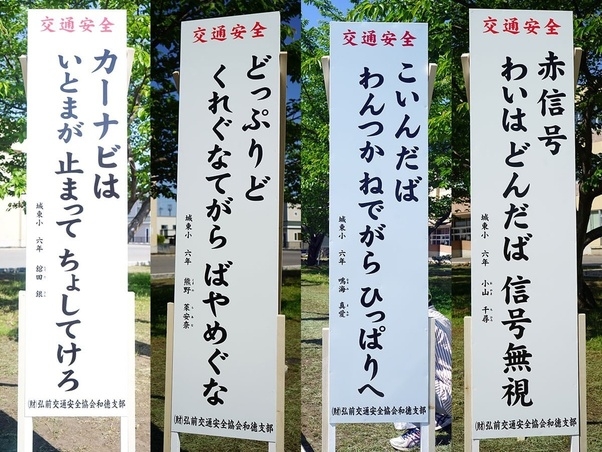 交通安全
カーナビは
いとまが 止まって ちょしてけろ
城東小 六年 舘田 銀
(財)弘前交通安全協会和徳支部
交通安全
どっぷりど
くれぐなてがら ばやめぐな
城東小 六年 熊野
(財)弘前交通安全協会和徳支部
交通安全
こいんだば
わんつか ねでがら ひっぱりへ
城東小 六年 鳴海 真愛
(財)弘前交通安全協会和徳支部
交通安全
赤信号
わいは どんだば 信号無視
城東小 六年 小山 千尋
(財)弘前交通安全協会和徳支部